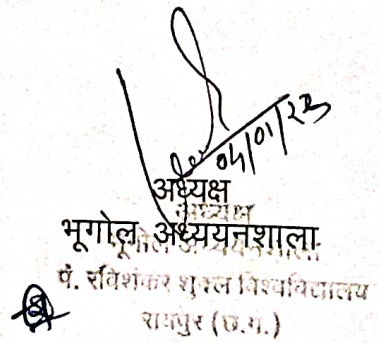 04/01/23
अध्यक्ष
अध्यक्ष
भूगोल अध्ययनशाला
भूगोल अध्ययनशाला
पं. रविशंकर शुक्ल विश्वविद्यालय
रायपुर (छ.ग.)